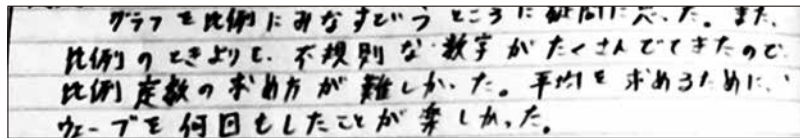 グラフを比例にみなすというところに疑問に思った。また、
比例のときよりも、不規則な数字がたくさんでてきたので
比例定数の求め方が難しかった。平均を求めるために、
ウェーブを何回もしたことが楽しかった。